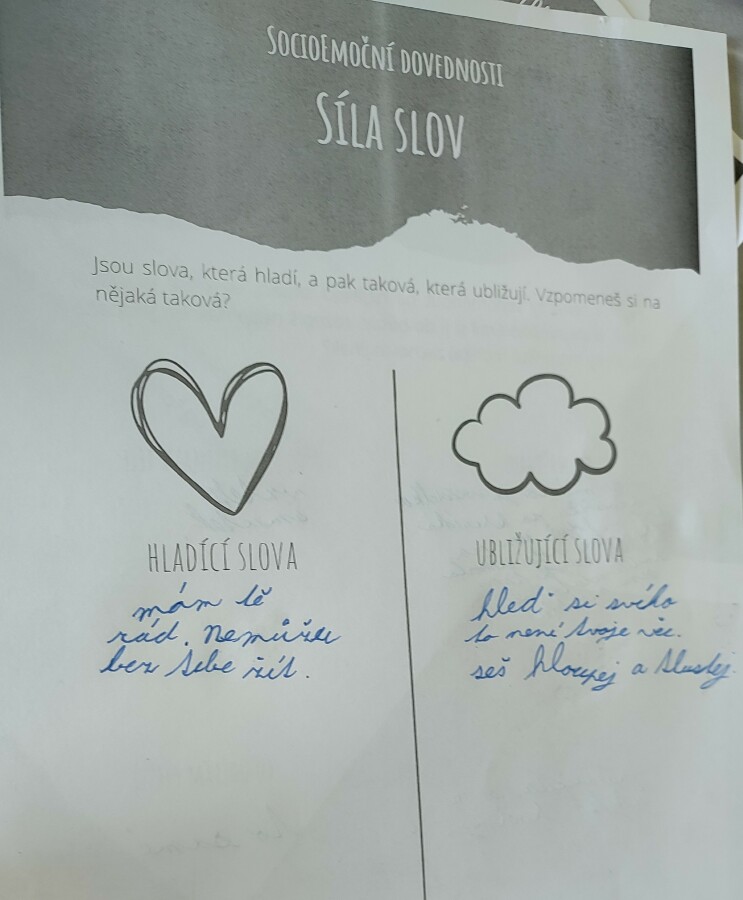 SocioEmoční dovednosti
Síla slov
Jsou slova, která hladí, a pak taková, která ubližují. Vzpomeneš si na
nějaká taková?
HLADÍCÍ SLOVA
mám tě
rád. Nemůžu
bez tebe žít.
UBLIŽUJÍCÍ SLOVA
hleď si svého
to není tvoje věc.
seš hloupej a tlustej.